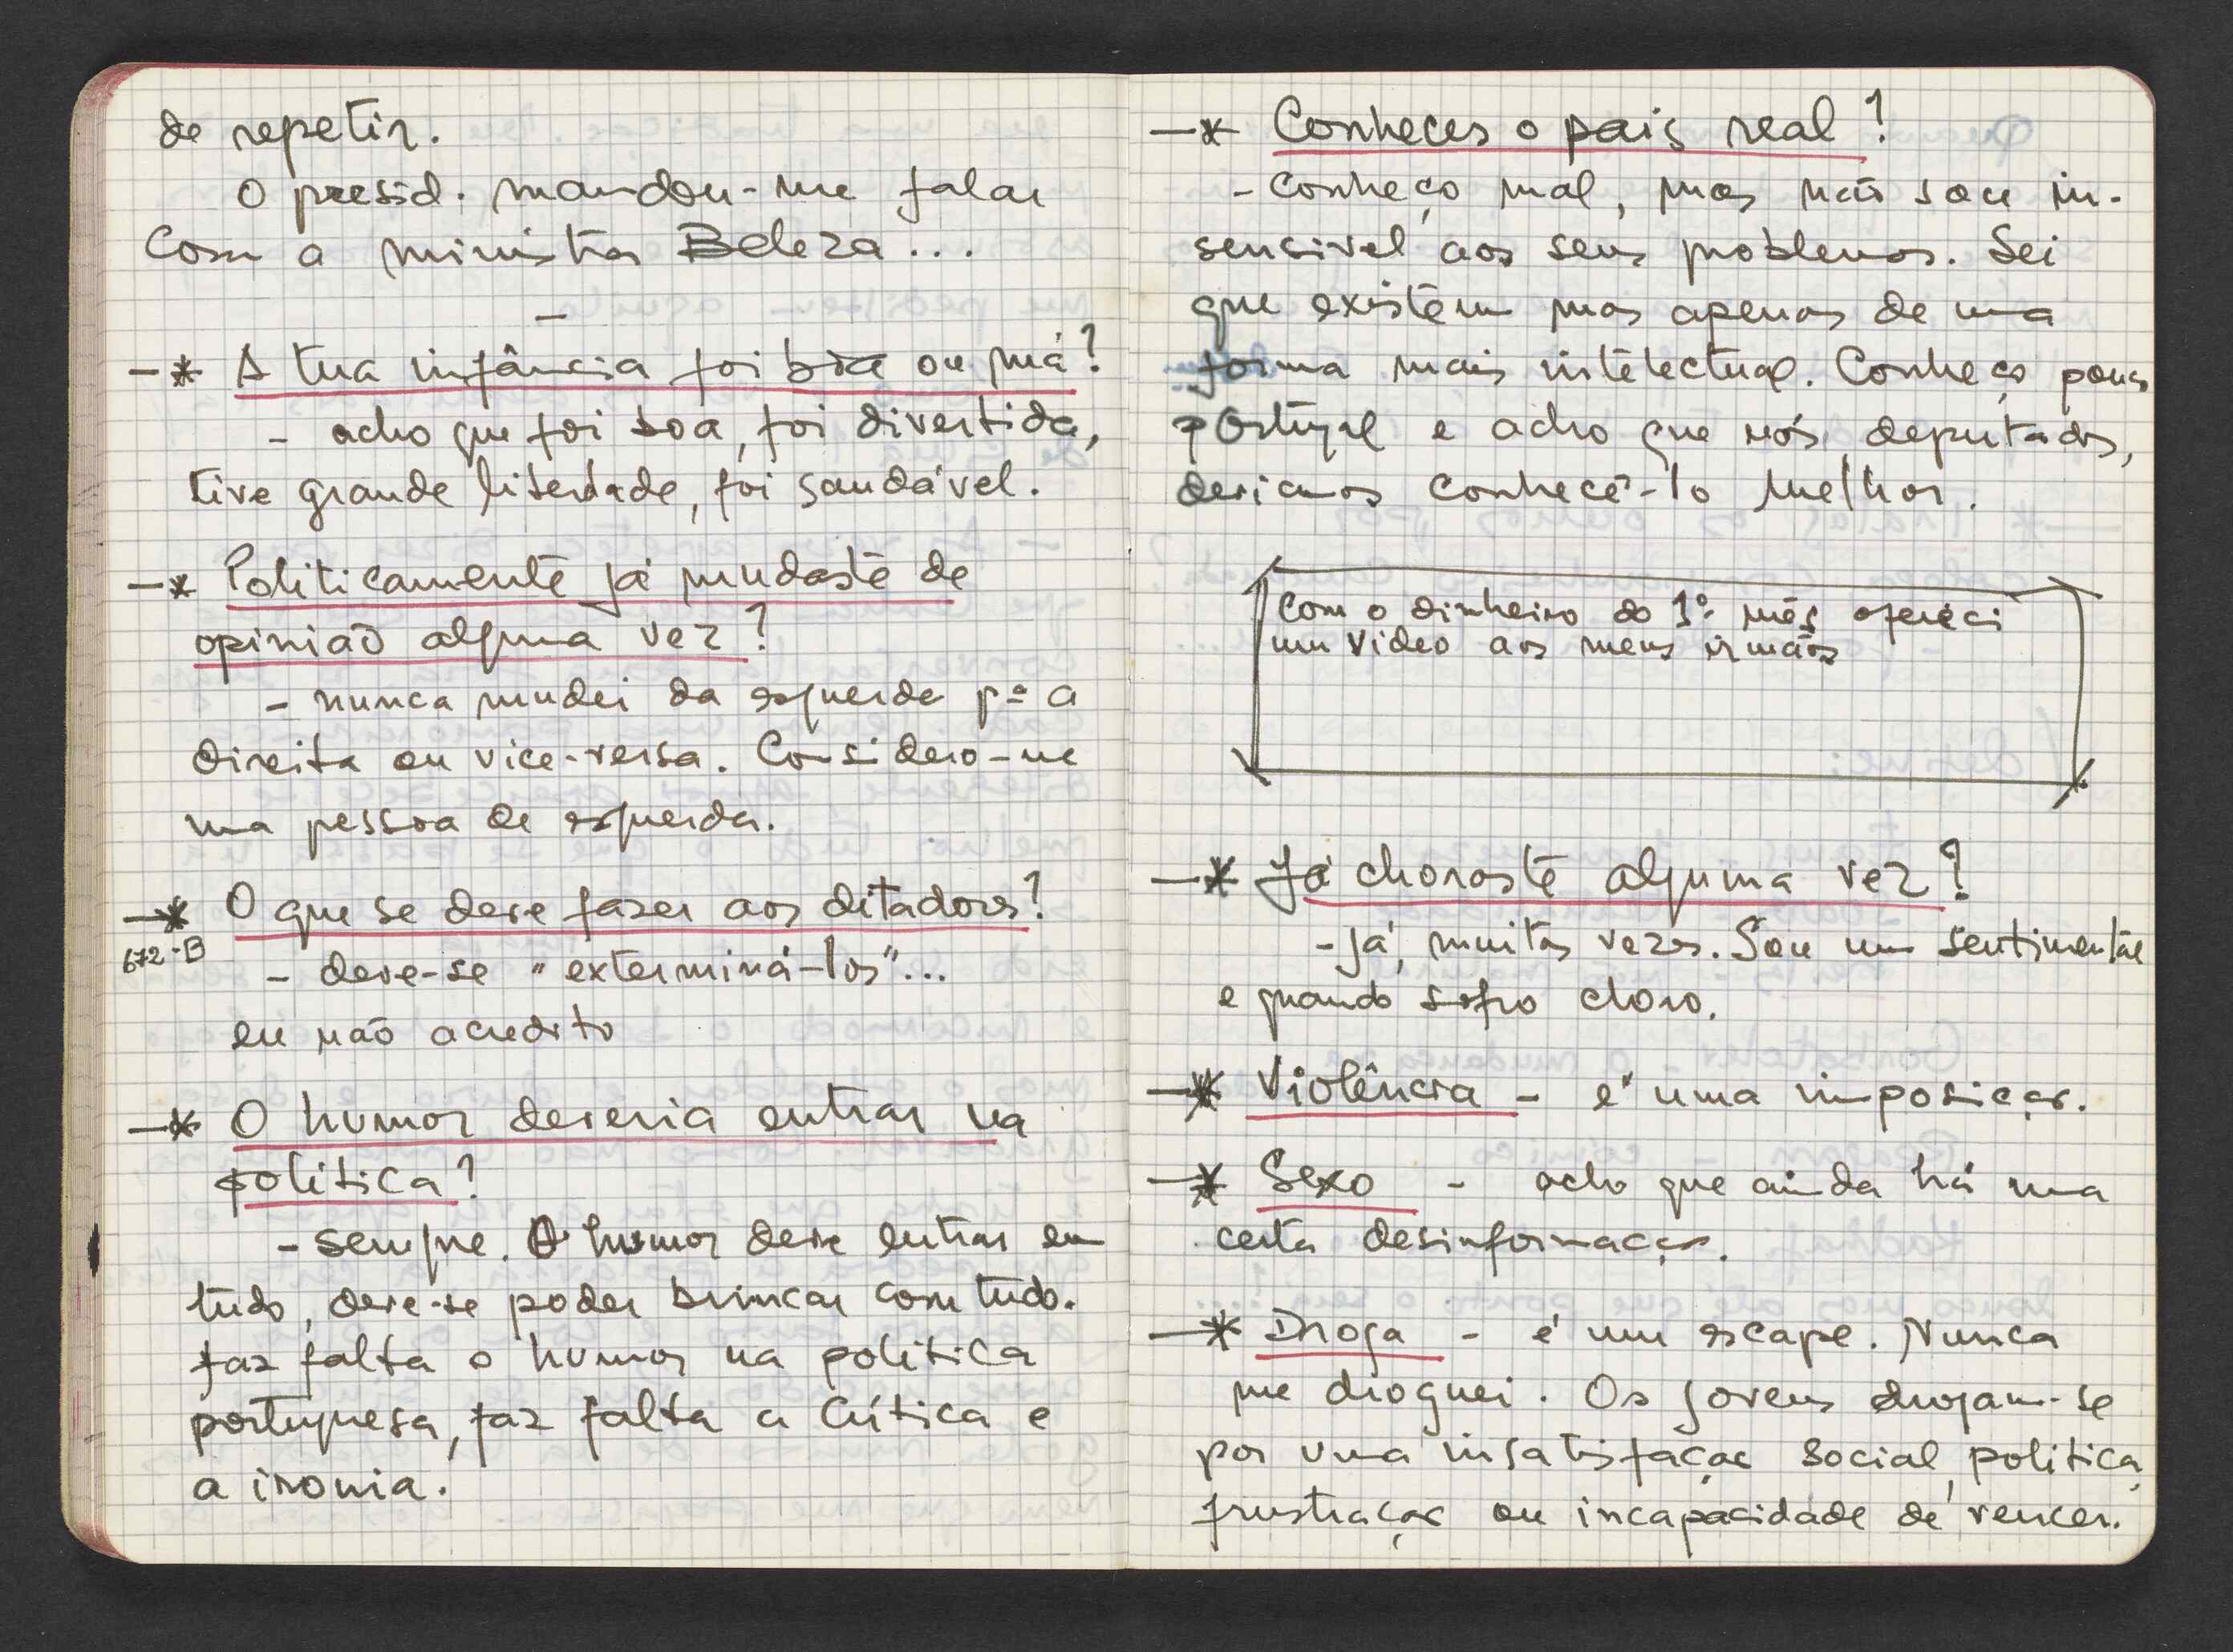 de repetir.
O presid. mandou-me falar
com a ministra Beleza...
—
—* A tua infância foi boa ou má?
- acho que foi boa, foi divertida,
tive grande liberdade, foi saudável.
—* Politicamente já mudaste de
opinião alguma vez?
- nunca mudei da esquerda pª a
direita ou vice-versa. Considero-me
uma pessoa de esquerda.
—* O que se deve fazer aos ditadores?
672-B
- deve-se "exterminá-los"...
eu não acredito
—* O humor deveria entrar na
política?
- sempre. O humor deve entrar em
tudo, deve-se poder brincar com tudo.
faz falta o humor na política
portuguesa, faz falta a crítica e
a ironia.
—* Conheces o país real?
- conheço mal, mas não sou in-
sensivel aos seus problemas. Sei
que existem mas apenas de uma
forma mais intelectual. Conheço pouco
Portugal e acho que nós, deputados,
deviamos conhecê-lo melhor.
Com o dinheiro do 1º mês ofereci
um video aos meus irmãos
—* Já choraste alguma vez?
- já, muitas vezes. Sou um sentimental
e quando sofro choro.
—* Violência - é uma imposição.
—* Sexo - acho que ainda há uma
certa desinformação.
—* Droga - é um escape. Nunca
me droguei. Os jovens drogam-se
por uma insatisfação social, politica,
frustração ou incapacidade de vencer.